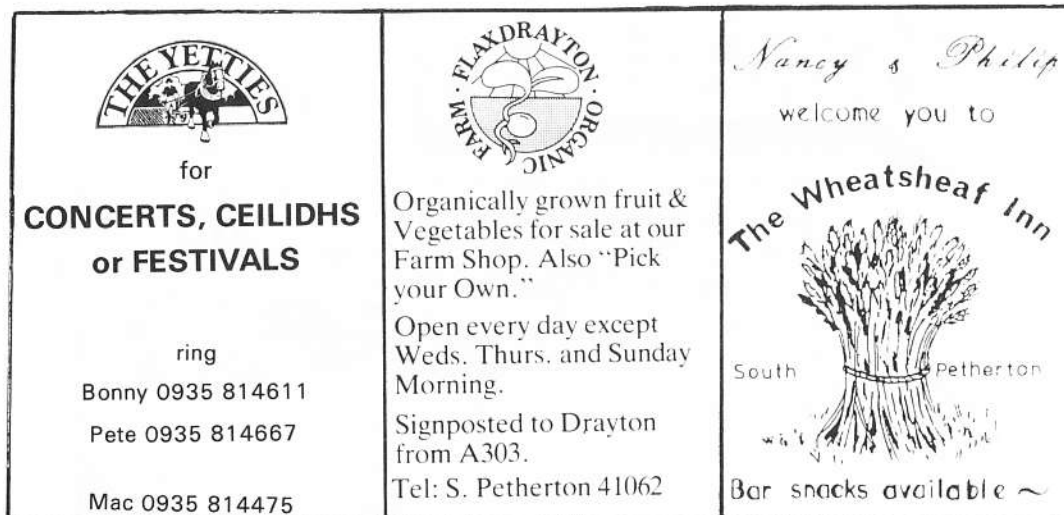 THE YETTIES
for
CONCERTS, CEILIDHS
or FESTIVALS
ring
Bonny 0935 814611
Pete 0935 814667
Mac 0935 814475
FARM · FLAXDRAYTON · ORGANIC
Organically grown fruit &
Vegetables for sale at our
Farm Shop. Also "Pick
your Own."
Open every day except
Weds. Thurs. and Sunday
Morning.
Signposted to Drayton
from A303.
Tel: S. Petherton 41062
Nancy & Philip
welcome you to
The Wheatsheaf Inn
South Petherton
Bar snacks available ~